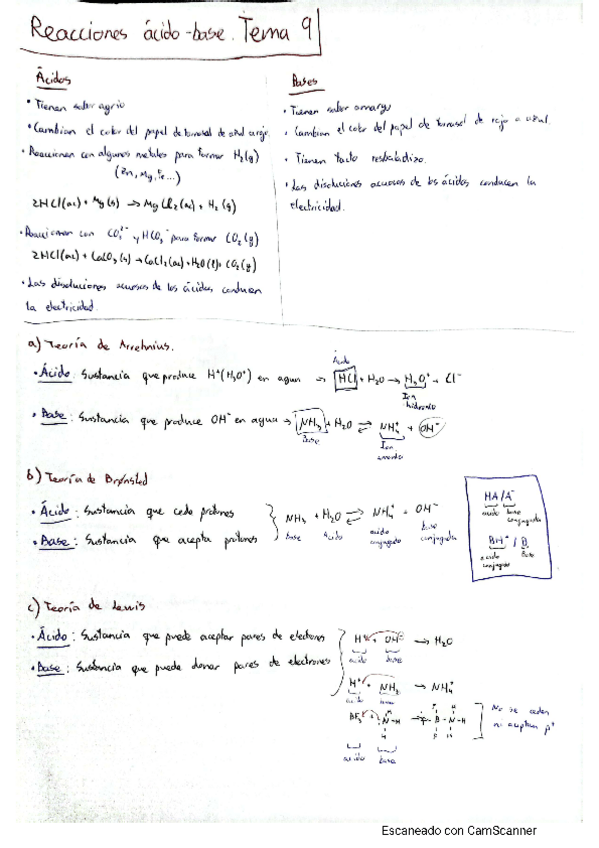 Reacciones ácido-base. Tema 9
Ácidos
• Tienen sabor agrio
• Cambian el color del papel de tornasol de azul a rojo.
• Reaccionan con algunos metales para formar H₂(g)
(Zn, Mg, Fe...)
2HCl(ac) + Mg(s) → MgCl₂(ac) + H₂(g)
• Reaccionan con CO₃²⁻ y HCO₃⁻ para formar CO₂(g)
2HCl(ac) + CaCO₃(s) → CaCl₂(ac) + H₂O(l) + CO₂(g)
• Las disoluciones acuosas de los ácidos conducen
la electricidad.
Bases
• Tienen sabor amargo
• Cambian el color del papel de tornasol de rojo a azul.
• Tienen tacto resbaladizo.
• Las disoluciones acuosas de los ácidos conducen la
electricidad.
a) Teoría de Arrehnius.
• Ácido: Sustancia que produce H⁺(H₃O⁺) en agua → HCl + H₂O → H₃O⁺ + Cl⁻
Ácido
Ion
hidronio
• Base: Sustancia que produce OH⁻ en agua → NH₃ + H₂O ⇌ NH₄⁺ + OH⁻
Base
Ion
amonio
b) Teoría de Brønsted
• Ácido: Sustancia que cede protones
• Base: Sustancia que acepta protones
NH₃ + H₂O ⇌ NH₄⁺ + OH⁻
base ácido ácido conjugado base conjugada
HA/A⁻
ácido base
conjugada
BH⁺/B
ácido base
conjugado
c) Teoría de Lewis
• Ácido: Sustancia que puede aceptar pares de electrones
• Base: Sustancia que puede donar pares de electrones
H⁺ + OH⁻ → H₂O
ácido base
H⁺ + NH₃ → NH₄⁺
ácido base
BF₃ + N-H → F-B-N-H
H
F H
F H
ácido base
No se ceden
ni aceptan p⁺
Escaneado con CamScanner